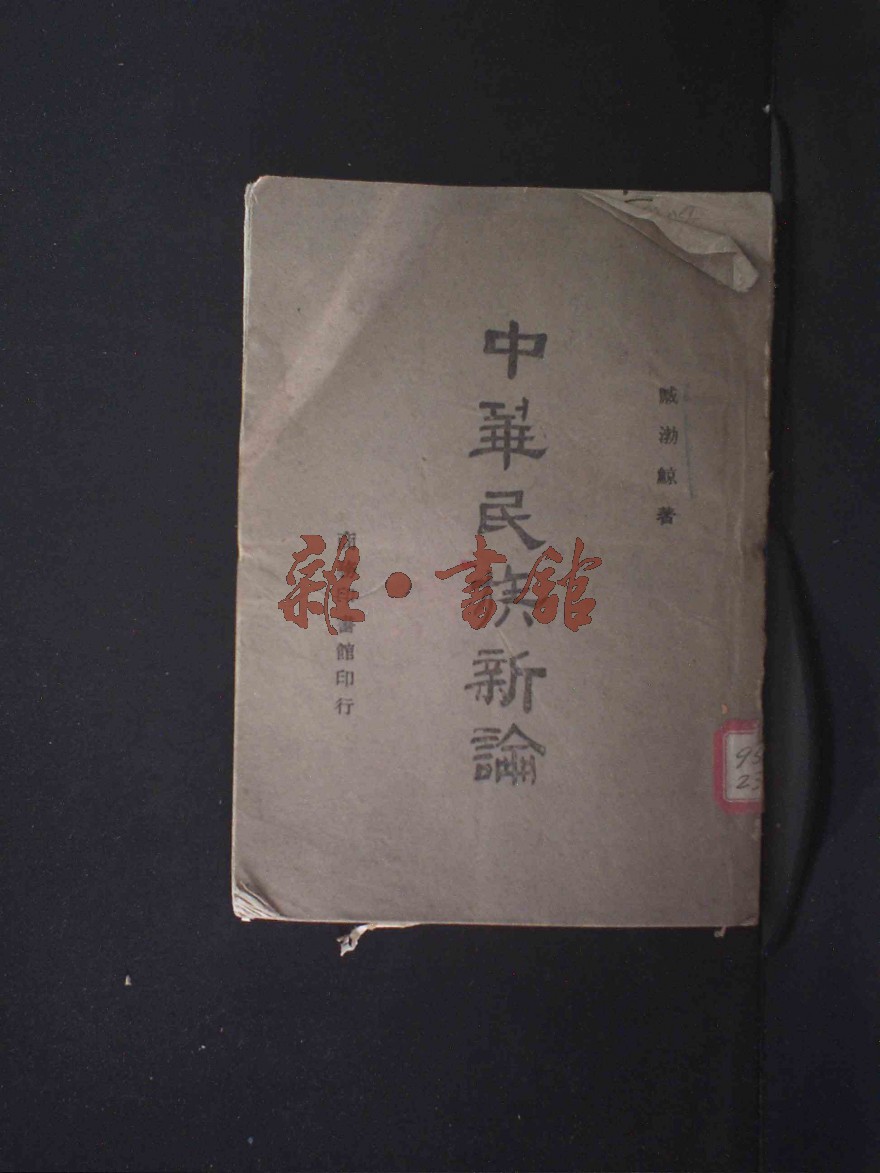 臧渤鯨著
中華民族新論
商務印書館印行
雜·書館